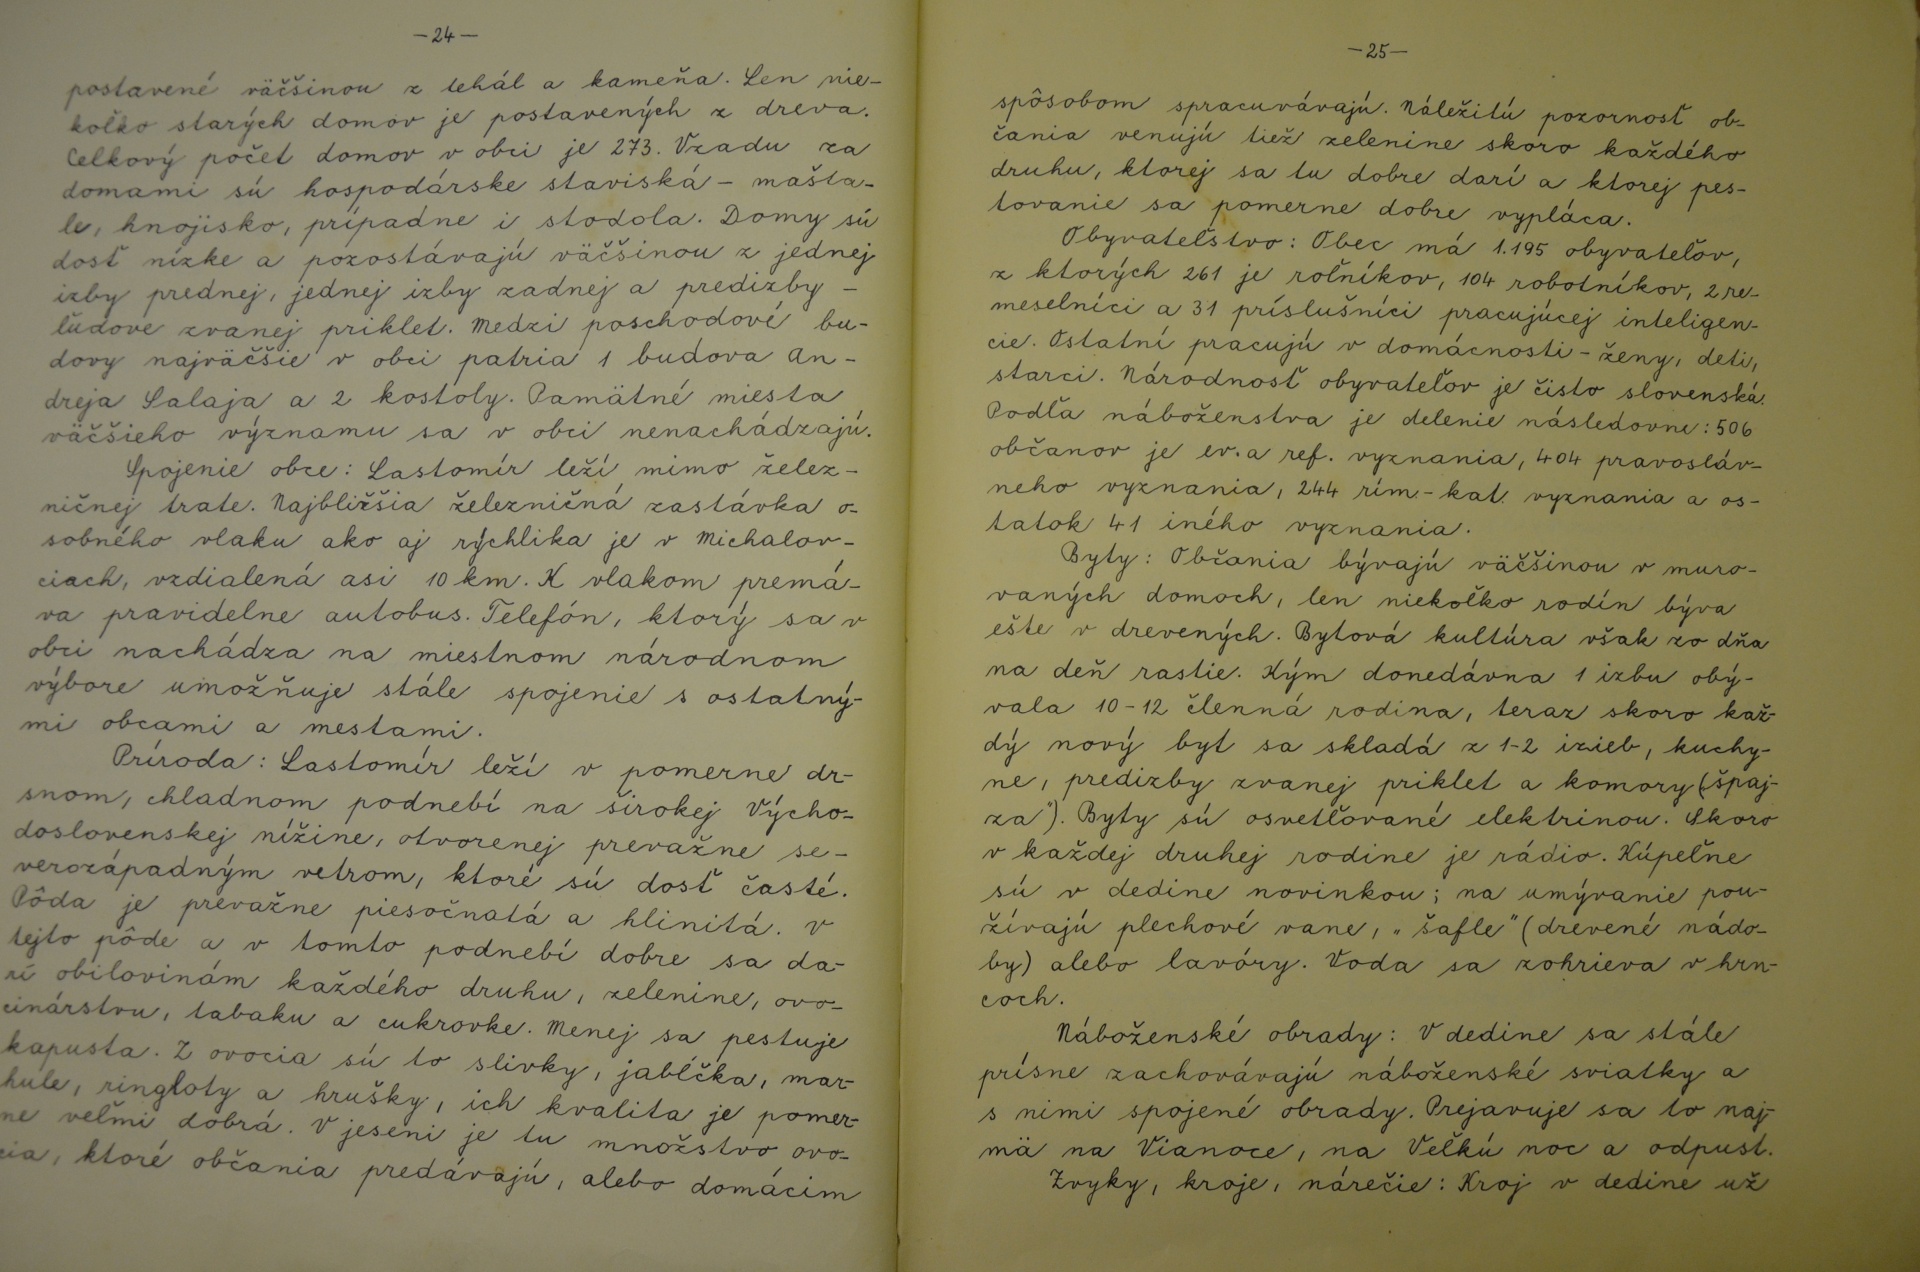 -24-
postavené väčšinou z tehál a kameňa. Len nie-
koľko starých domov je postavených z dreva.
Celkový počet domov v obci je 273. Vzadu za
domami sú hospodárske staviská - mašta-
le, hnojisko, prípadne i stodola. Domy sú
dosť nízke a pozostávajú väčšinou z jednej
izby prednej, jednej izby zadnej a predizby -
ľudove zvanej priklet. Medzi poschodové bu-
dovy najväčšie v obci patria 1 budova An-
dreja Salaja a 2 kostoly. Pamätné miesta
väčšieho významu sa v obci nenachádzajú.
Spojenie obce: Lastomír leží mimo želez-
ničnej trate. Najbližšia železničná zastávka o-
sobného vlaku ako aj rýchlika je v Michalov-
ciach, vzdialená asi 10 km. K vlakom premá-
va pravidelne autobus. Telefón, ktorý sa v
obci nachádza na miestnom národnom
výbore umožňuje stále spojenie s ostatný-
mi obcami a mestami.
Príroda: Lastomír leží v pomerne dr-
snom, chladnom podnebí na širokej Výcho-
doslovenskej nížine, otvorenej prevažne se-
verozápadným vetrom, ktoré sú dosť časté.
Pôda je prevažne piesočnatá a hlinitá. V
tejto pôde a v tomto podnebí dobre sa da-
rí obilovinám každého druhu, zelenine, ovo-
cinárstvu, tabaku a cukrovke. Menej sa pestuje
kapusta. Z ovocia sú to slivky, jabĺčka, mar-
hule, ringloty a hrušky, ich kvalita je pomer-
ne veľmi dobrá. V jeseni je tu množstvo ovo-
cia, ktoré občania predávajú, alebo domácim
-25-
spôsobom spracuvávajú. Náležitú pozornosť ob-
čania venujú tiež zelenine skoro každého
druhu, ktorej sa tu dobre darí a ktorej pes-
tovanie sa pomerne dobre vypláca.
Obyvateľstvo: Obec má 1.195 obyvateľov,
z ktorých 261 je roľníkov, 104 robotníkov, 2 re-
meselníci a 31 príslušníci pracujúcej inteligen-
cie. Ostatní pracujú v domácnosti - ženy, deti,
starci. Národnosť obyvateľov je čisto slovenská.
Podľa náboženstva je delenie následovne: 506
občanov je ev. a ref. vyznania, 404 pravosláv-
neho vyznania, 244 rím.-kat. vyznania a os-
tatok 41 iného vyznania.
Byty: Občania bývajú väčšinou v muro-
vaných domoch, len niekoľko rodín býva
ešte v drevených. Bytová kultúra však zo dňa
na deň rastie. Kým donedávna 1 izbu obý-
vala 10-12 členná rodina, teraz skoro kaž-
dý nový byt sa skladá z 1-2 izieb, kuchy-
ne, predizby zvanej priklet a komory („špaj-
za"). Byty sú osvetľované elektrinou. Skoro
v každej druhej rodine je rádio. Kúpeľne
sú v dedine novinkou; na umývanie pou-
žívajú plechové vane, „šafle" (drevené nádo-
by) alebo lavóry. Voda sa zohrieva v hrn-
coch.
Náboženské obrady: V dedine sa stále
prísne zachovávajú náboženské sviatky a
s nimi spojené obrady. Prejavuje sa to naj-
mä na Vianoce, na Veľkú noc a odpust.
Zvyky, kroje, nárečie: Kroj v dedine už